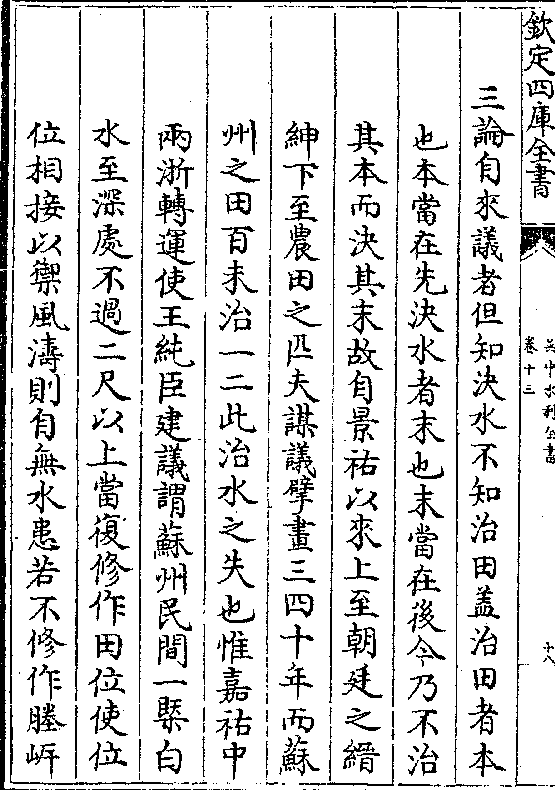 欽定四庫全書
吳中水利全書
卷十三
十八
三論自來議者但知決水不知治田葢治田者本
也本當在先決水者末也末當在後今乃不治
其本而決其末故自景祐以來上至朝廷之縉
紳下至農田之匹夫謀議擘畫三四十年而蘇
州之田百未治一二此治水之失也惟嘉祐中
兩浙轉運使王純臣建議謂蘇州民間一槩白
水至深處不過二尺以上當復修作田位使位
位相接以禦風濤則自無水患若不修作塍岍